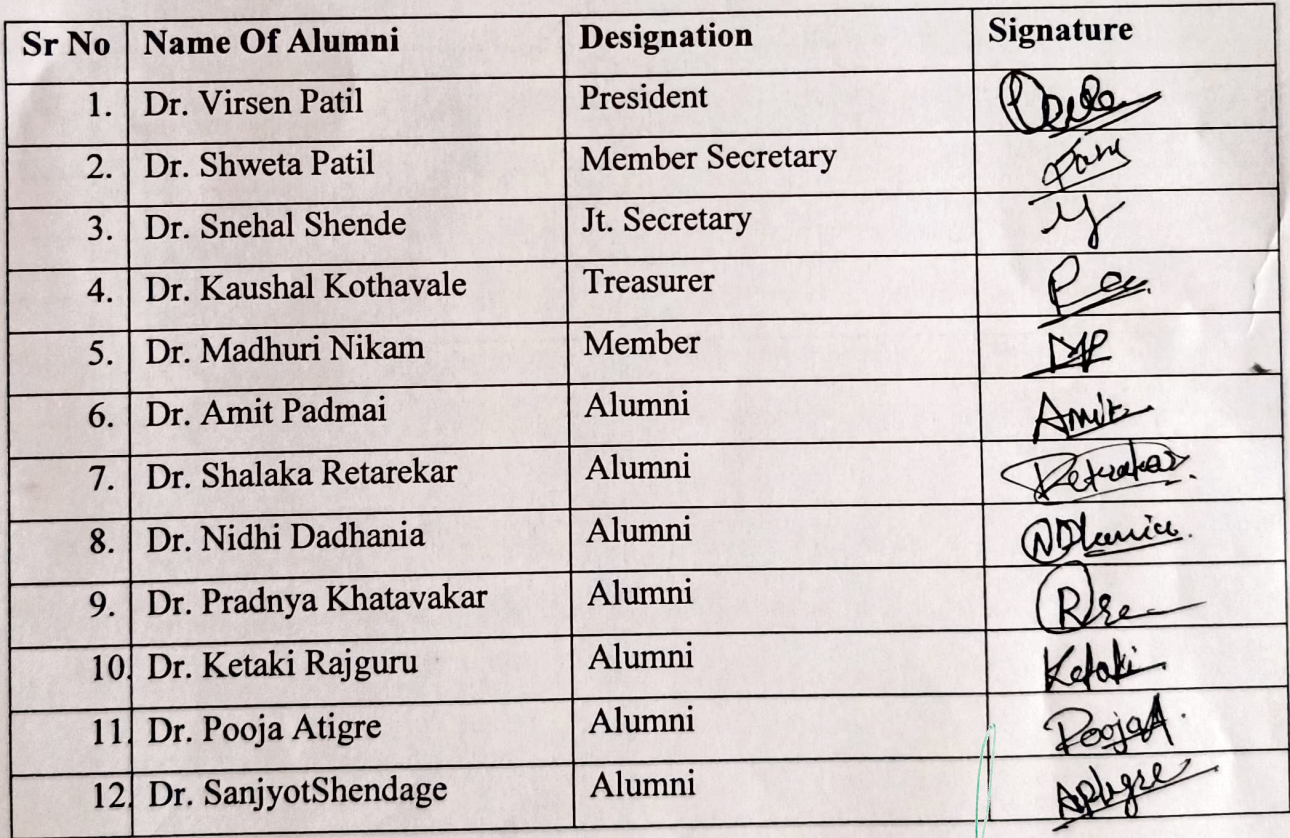 Sr No Name Of Alumni Designation Signature
1. Dr. Virsen Patil President
2. Dr. Shweta Patil Member Secretary
3. Dr. Snehal Shende Jt. Secretary
4. Dr. Kaushal Kothavale Treasurer
5. Dr. Madhuri Nikam Member
6. Dr. Amit Padmai Alumni Amit
7. Dr. Shalaka Retarekar Alumni
8. Dr. Nidhi Dadhania Alumni
9. Dr. Pradnya Khatavakar Alumni
10. Dr. Ketaki Rajguru Alumni Ketaki
11. Dr. Pooja Atigre Alumni PoojaA.
12. Dr. SanjyotShendage Alumni